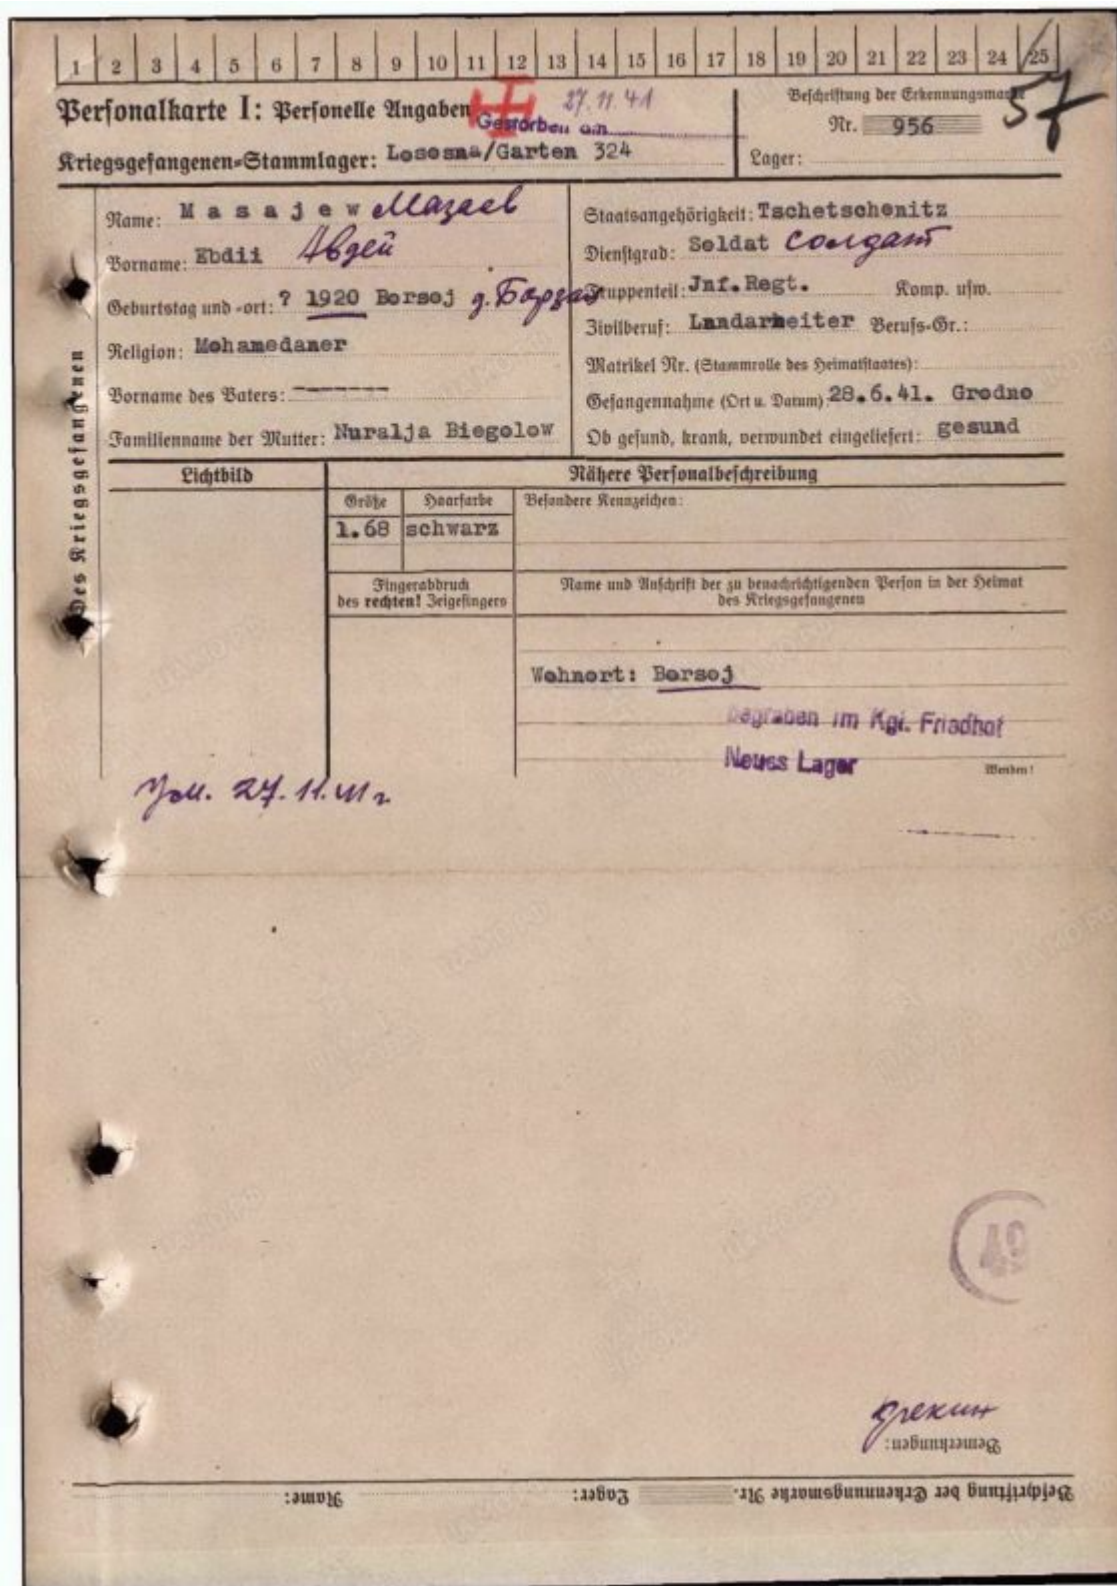 1 2 3 4 5 6 7 8 9 10 11 12 13 14 15 16 17 18 19 20 21 22 23 24 25
57
Personalkarte I: Personelle Angaben
27.11.41
Gestorben am
Kriegsgefangenen-Stammlager: Lososna/Garten 324
Beschriftung der Erkennungsmarke
Nr. 956
Lager:
Des Kriegsgefangenen
Name: Masajew Мазаев
Vorname: Ebdii Авдей
Geburtstag und -ort: ? 1920 Borsoj д. Борзай
Religion: Mohamedaner
Vorname des Vaters:
Familienname der Mutter: Nuralja Biegolow
Staatsangehörigkeit: Tschetschenitz
Dienstgrad: Soldat солдат
Truppenteil: Jnf.Regt. Komp. usw.
Zivilberuf: Landarbeiter Berufs-Gr.:
Matrikel Nr. (Stammrolle des Heimatstaates):
Gefangennahme (Ort u. Datum) 28.6.41. Grodno
Ob gesund, krank, verwundet eingeliefert: gesund
Lichtbild
Nähere Personalbeschreibung
Größe Haarfarbe Besondere Kennzeichen:
1.68 schwarz
Fingerabdruck
des rechten! Zeigefingers
Name und Anschrift der zu benachrichtigenden Person in der Heimat
des Kriegsgefangenen
Wohnort: Borsoj
begraben im Kgf. Friedhof
Neues Lager
Wenden!
Ум. 27.11.41 г
49
Bemerkungen:
Beschriftung der Erkennungsmarke Nr. Lager: Name: